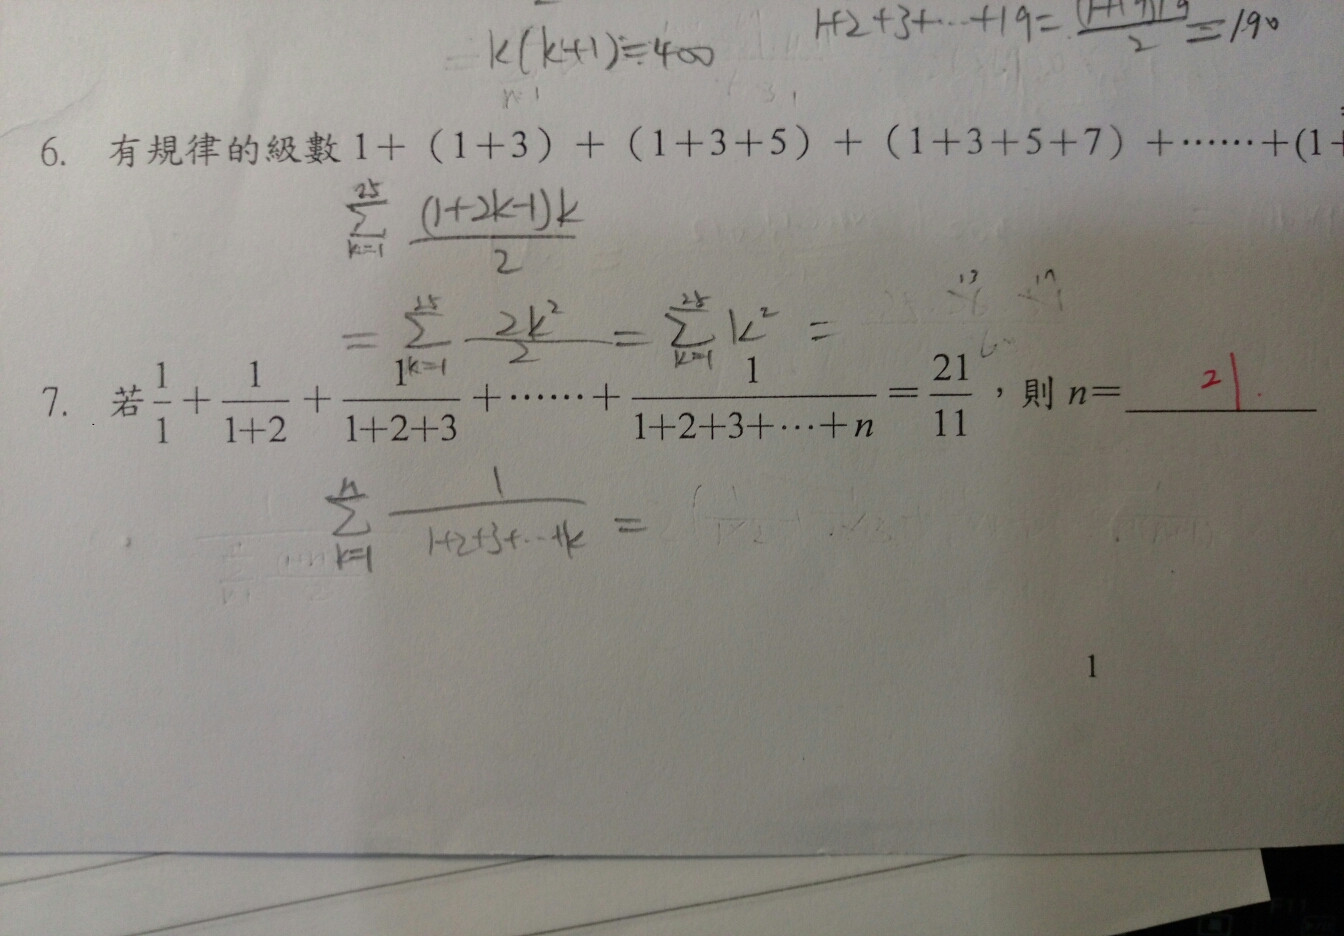 k(k+1)=400
1+2+3+…+19=(1+19)19/2=190
6. 有規律的級數 1+（1+3）+（1+3+5）+（1+3+5+7）+……+(1+
25 Σ k=1 (1+2k-1)k/2
= 25 Σ k=1 2k²/2 = 25 Σ k=1 k² =
7. 若 1/1 + 1/1+2 + 1/1+2+3 +……+ 1/1+2+3+…+n = 21/11，則 n= 21.
n Σ k=1 1/1+2+3+…+k =
1